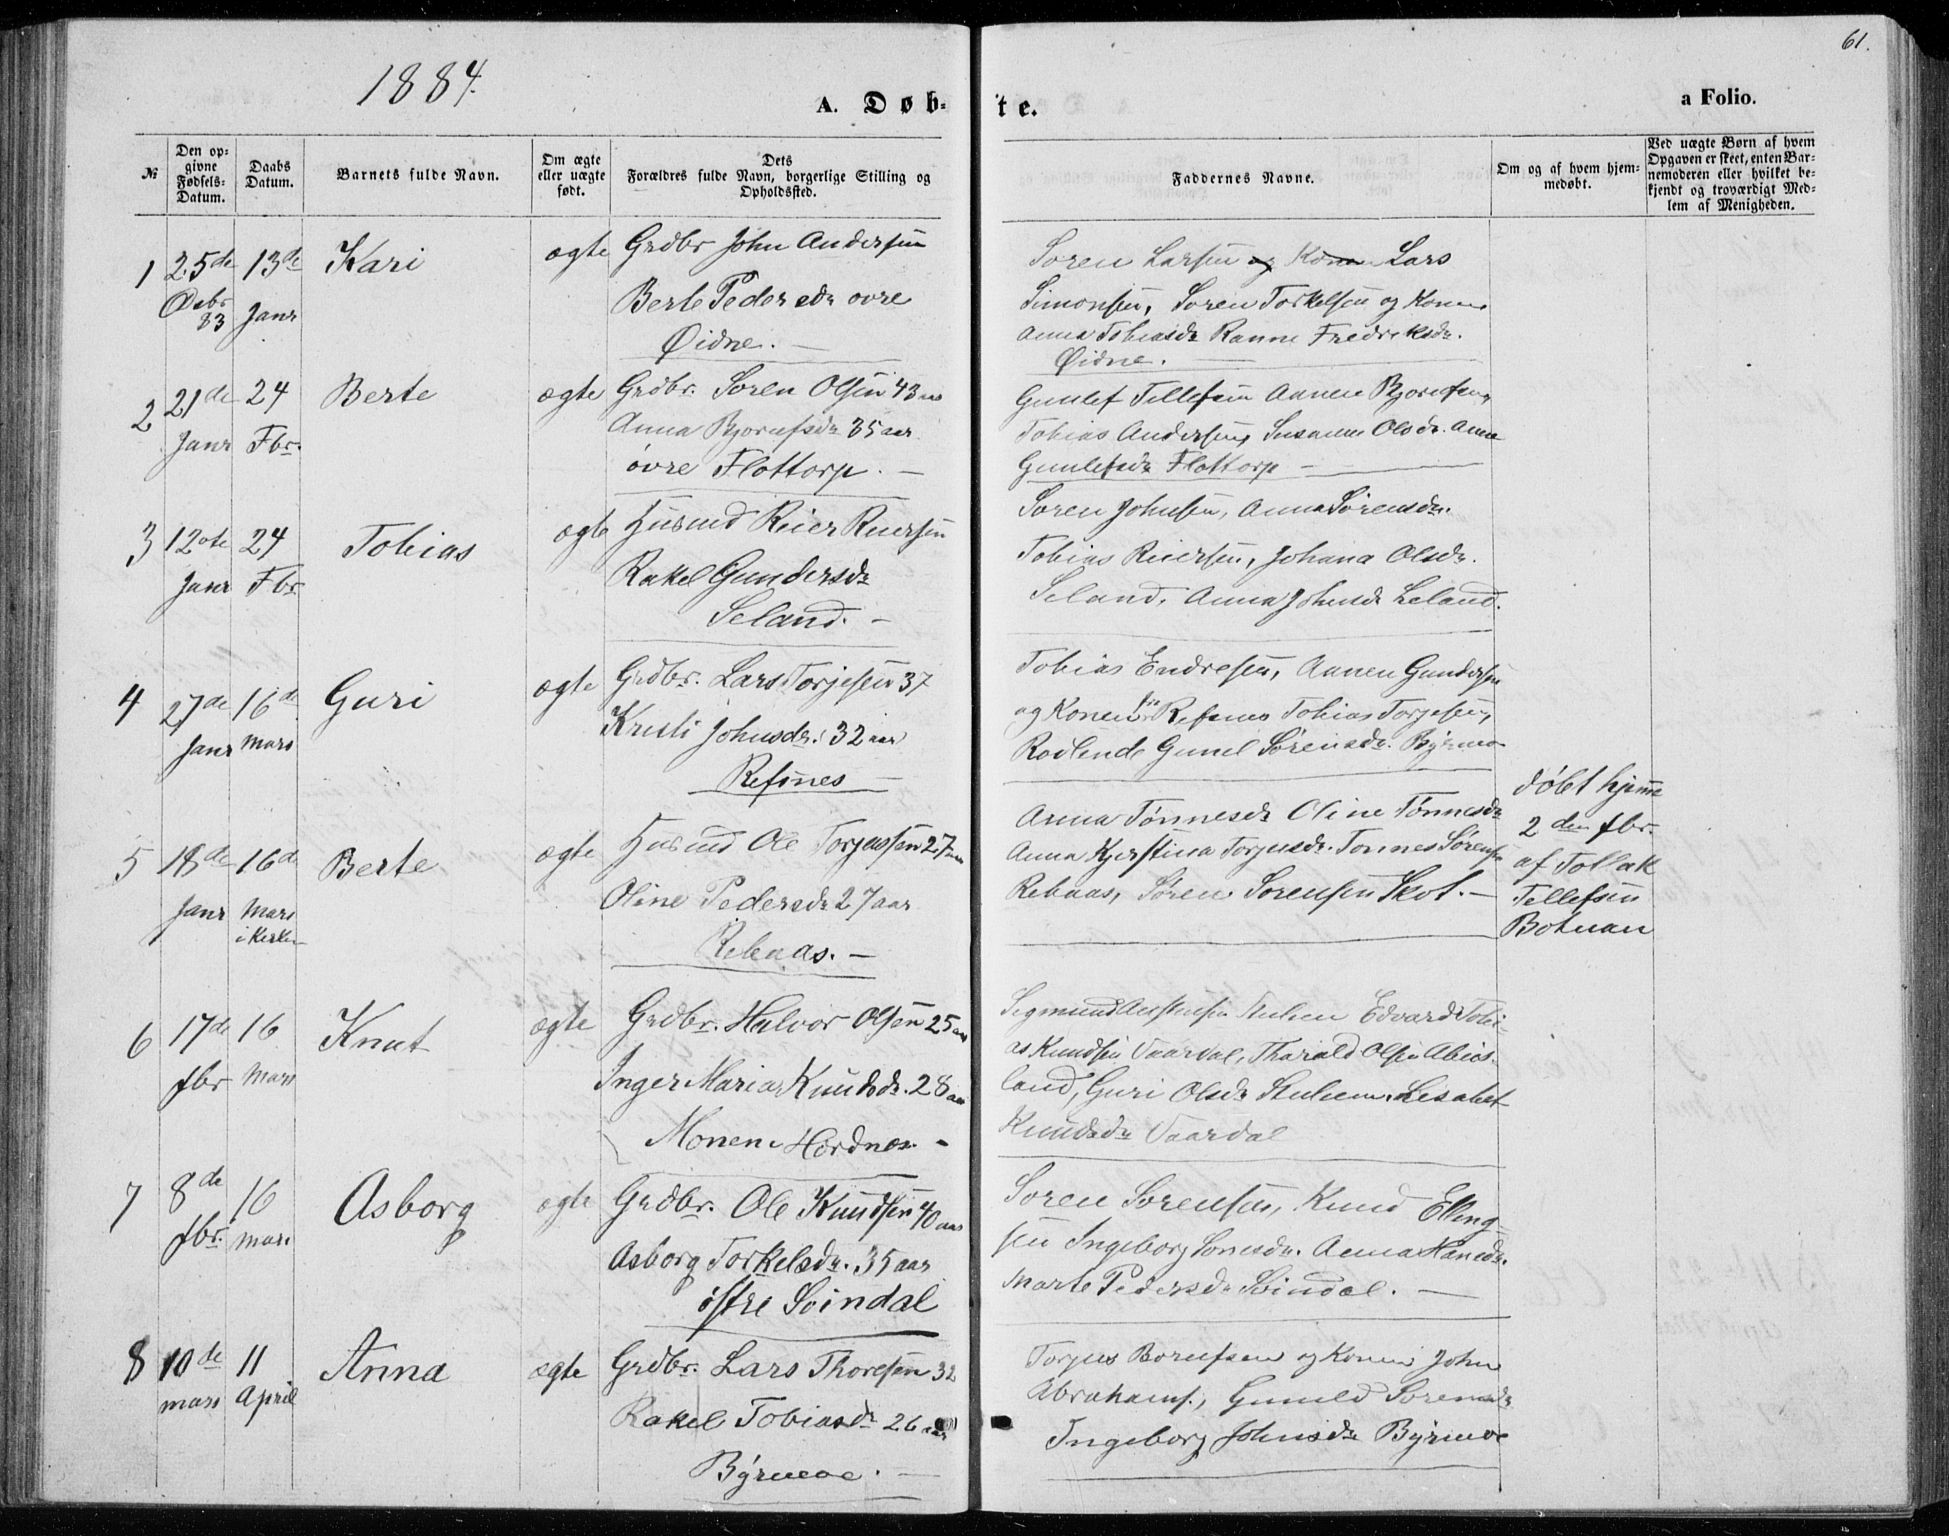 1884.
61.
A. Døb-
te.
a Folio.
№
Den op-
givne
Fødsels-
Datum.
Daabs
Datum.
Barnets fulde Navn.
Om ægte
eller uægte
født.
Dets
Forældres fulde Navn, borgerlige Stilling og
Opholdssted.
Faddernes Navne.
Om og af hvem hjem-
medøbt.
Ved uægte Børn af hvem
Opgaven er skeet, enten Bar-
nemoderen eller hvilket be-
kjendt og troværdigt Med-
lem af Menigheden.
1 25de 13de Kari ægte Grdbr John Andersen
Debr 83 Janr Berte Pedersdr ovre
Øidne. —
Soren Larsen og Kone Lars
Simonsen, Soren Torkelsen og Kone
Anna Tobiasdr Ranne Fredreksdr.
Øidne.
2 21de 24 Berte ægte Grdbr. Soren Olsen 43 aar
Janr Fbr. Anna Bjornfsdr 35 aar
øvre Flottorp. —
Gunlef Tellefsen Annen Bjornfsen,
Tobias Andersen, Susanne Olsdr. Anne
Gunlefsdr Flottorp —
3 12ote 24 Tobias ægte Husmd Reier Reiersen
Janr Fbr Rakel Gundersdr
Seland. —
Soren Johnsen, Anna Sørensdr.
Tobias Reiersen, Johana Olsdr.
Seland. Anna Johnsdr Leland.
4 27de 16d Guri ægte Grdbr. Lars Torjesen 37
Janr Mars Kristi Johnsdr. 32 aar
Refsnes
Tobias Endresen, Annen Gundersen
og Konen Refsnes Tobias Torjesen,
Rodlende Gunel Sørensdr. Byrmo
5 18de 16d Berte ægte Husmd Ole Torjussen 27 aar
Janr Mars i Kerken Oline Pedersdr 27 aar
Rebaas. —
Anna Tønnesdr Oline Tønnesdr
Anna Kjerstina Torjusdr. Tonnes Sørensen
Rebaas, Søren Sorensen Skot. —
døbt hjemme
2den fbr.
af Tollak
Tellefsen
Botnan
6 17de 16 Knut ægte Grdbr. Halvor Olsen 25 aar
fbr Mars Inger Maria Knudsdr. 28 aar
Monen Hordnes. —
Segmund Edvard Tobi-
as Knudsen Vaardal, Tharald Olsen Abies-
land, Guri Olsdr Lisabet
Knudsdr Vaardal
7 8de 16 Asborg ægte Grdbr. Ole Knudsen 40 aar
fbr. Mars Asborg Torkelsdr. 35 aar
østre Soindal
Soren Sorensen, Knud Elling-
sen Ingeborg Sonesdr. Anna Hansdr.
Marte Pedersdr Soindal. —
8 10de 11 Anna ægte Grdbr. Lars Thoresen 32
mars April Rakel Tobiasdr 26 aar
Byrmoe. —
Torjus Borufsen og Konen John
Abrahams., Gunuld Sorensdr
Ingeborg Johnsdr Byrmoe